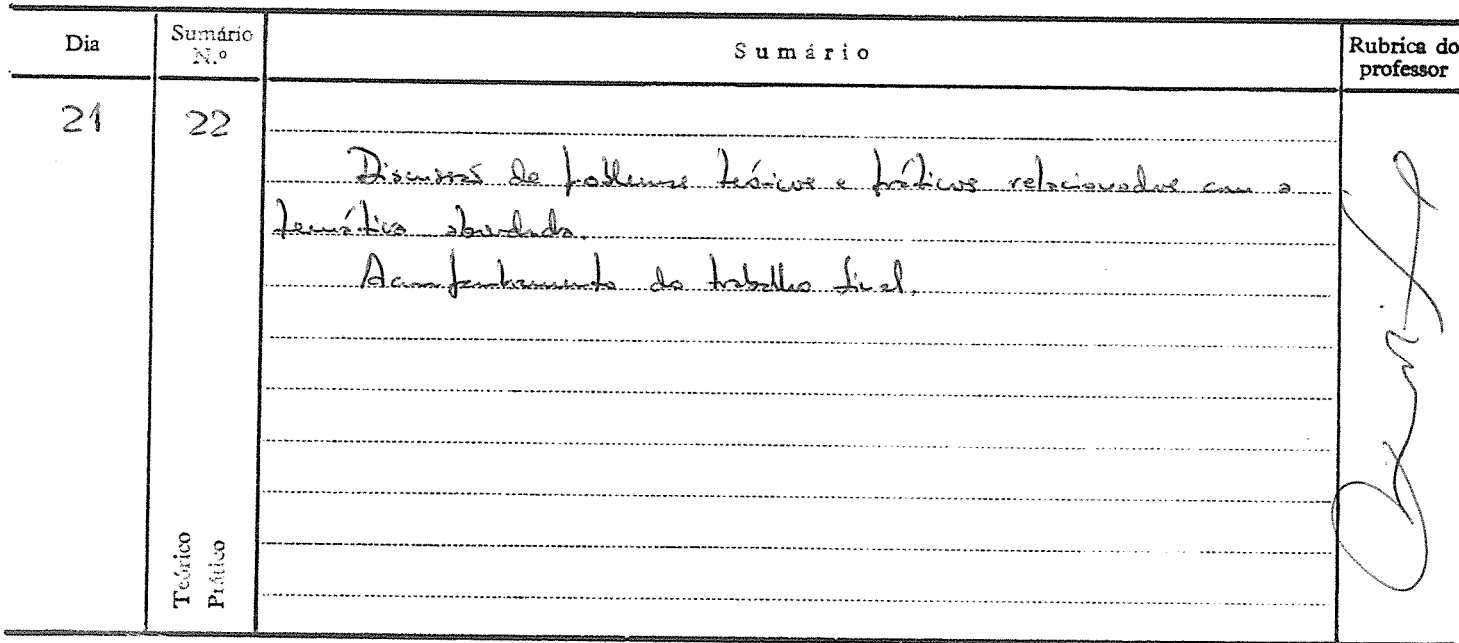 Dia
Sumário N.º
Sumário
Rubrica do professor
21
22
Discussão de problemas teóricos e práticos relacionados com a
temática abordada.
Acompanhamento do trabalho final.
Teórico
Prático